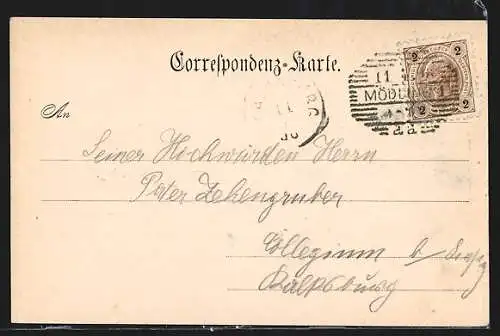 Correspondenz-Karte.
2 2
11
MÖDLING
2 2
An
Seiner Hochwürden Herrn
Pater Zehengruber
Collegium b/
Kalksburg